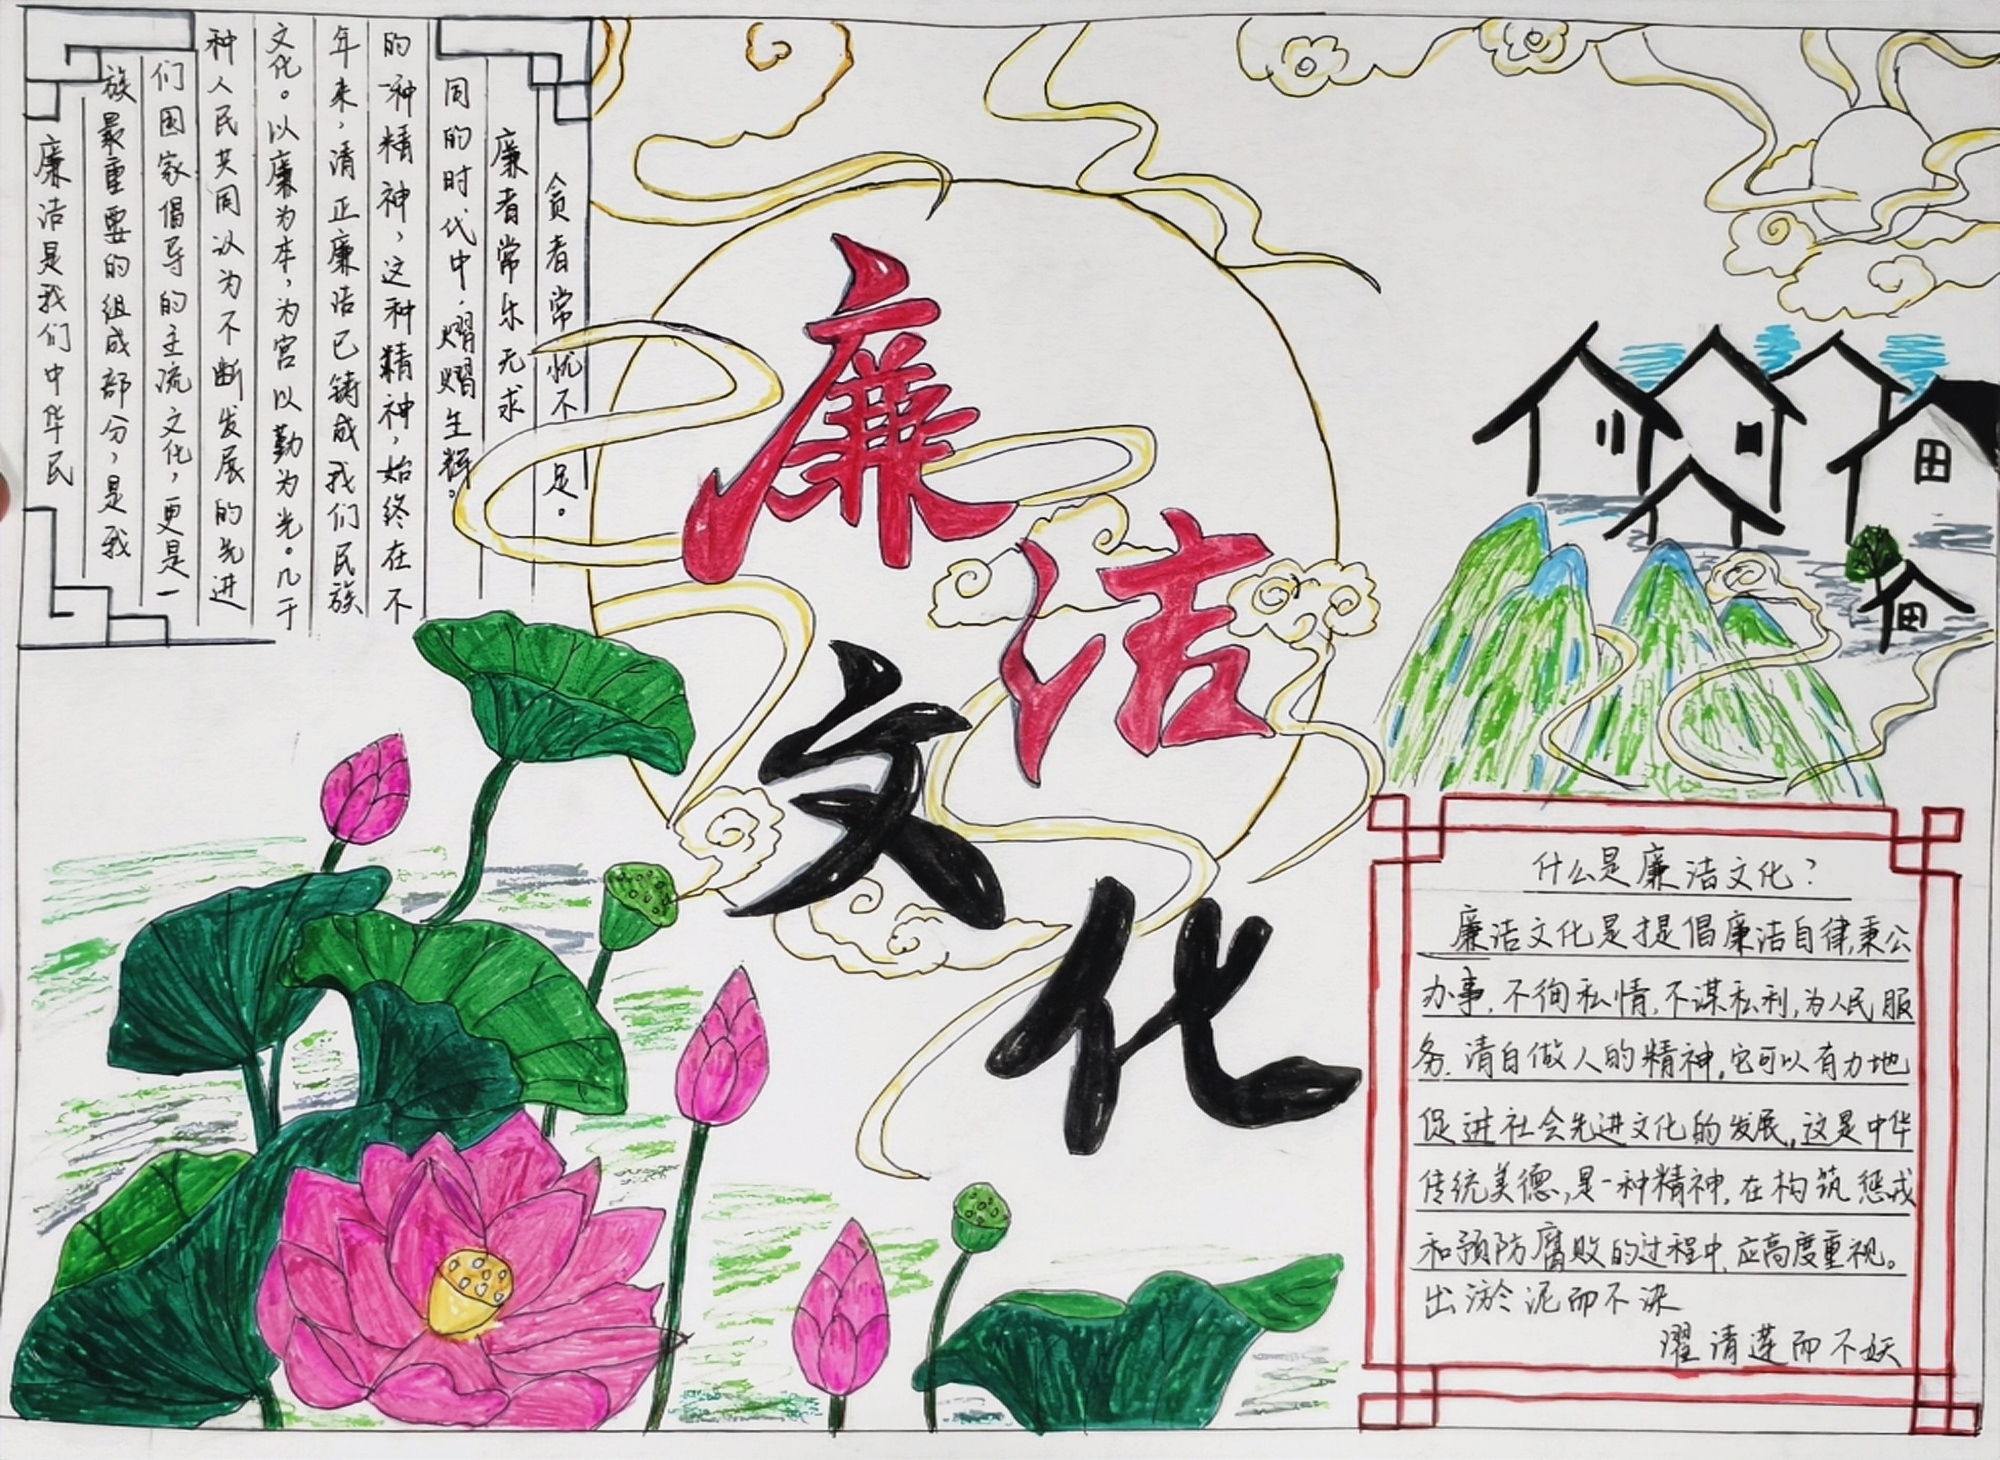 廉洁是我们中华民
族最重要的组成部分，是我
们国家倡导的主流文化，更是一
种人民共同认为不断发展的先进
文化。以廉为本，为官以勤为光。几千
年来，清正廉洁已铸成我们民族
的一种精神，这种精神，始终在不
同的时代中，熠熠生辉。
廉者常乐无求
贪者常忧不足。
廉洁
文化
什么是廉洁文化？
廉洁文化是提倡廉洁自律,秉公
办事,不徇私情,不谋私利,为人民服
务,清白做人的精神,它可以有力地
促进社会先进文化的发展,这是中华
传统美德,是一种精神,在构筑惩戒
和预防腐败的过程中,应高度重视。
出淤泥而不染
濯清莲而不妖